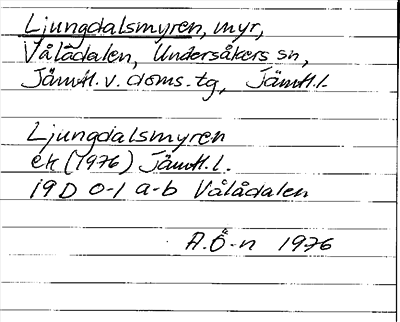 Ljungdalsmyren, myr,
Vålådalen, Undersåkers sn,
Jämtl. v. doms. tg, Jämtl. l.
Ljungdalsmyren
ek (1976) Jämtl. l.
19D 0-1 a-b Vålådalen
A.Ö-n 1976